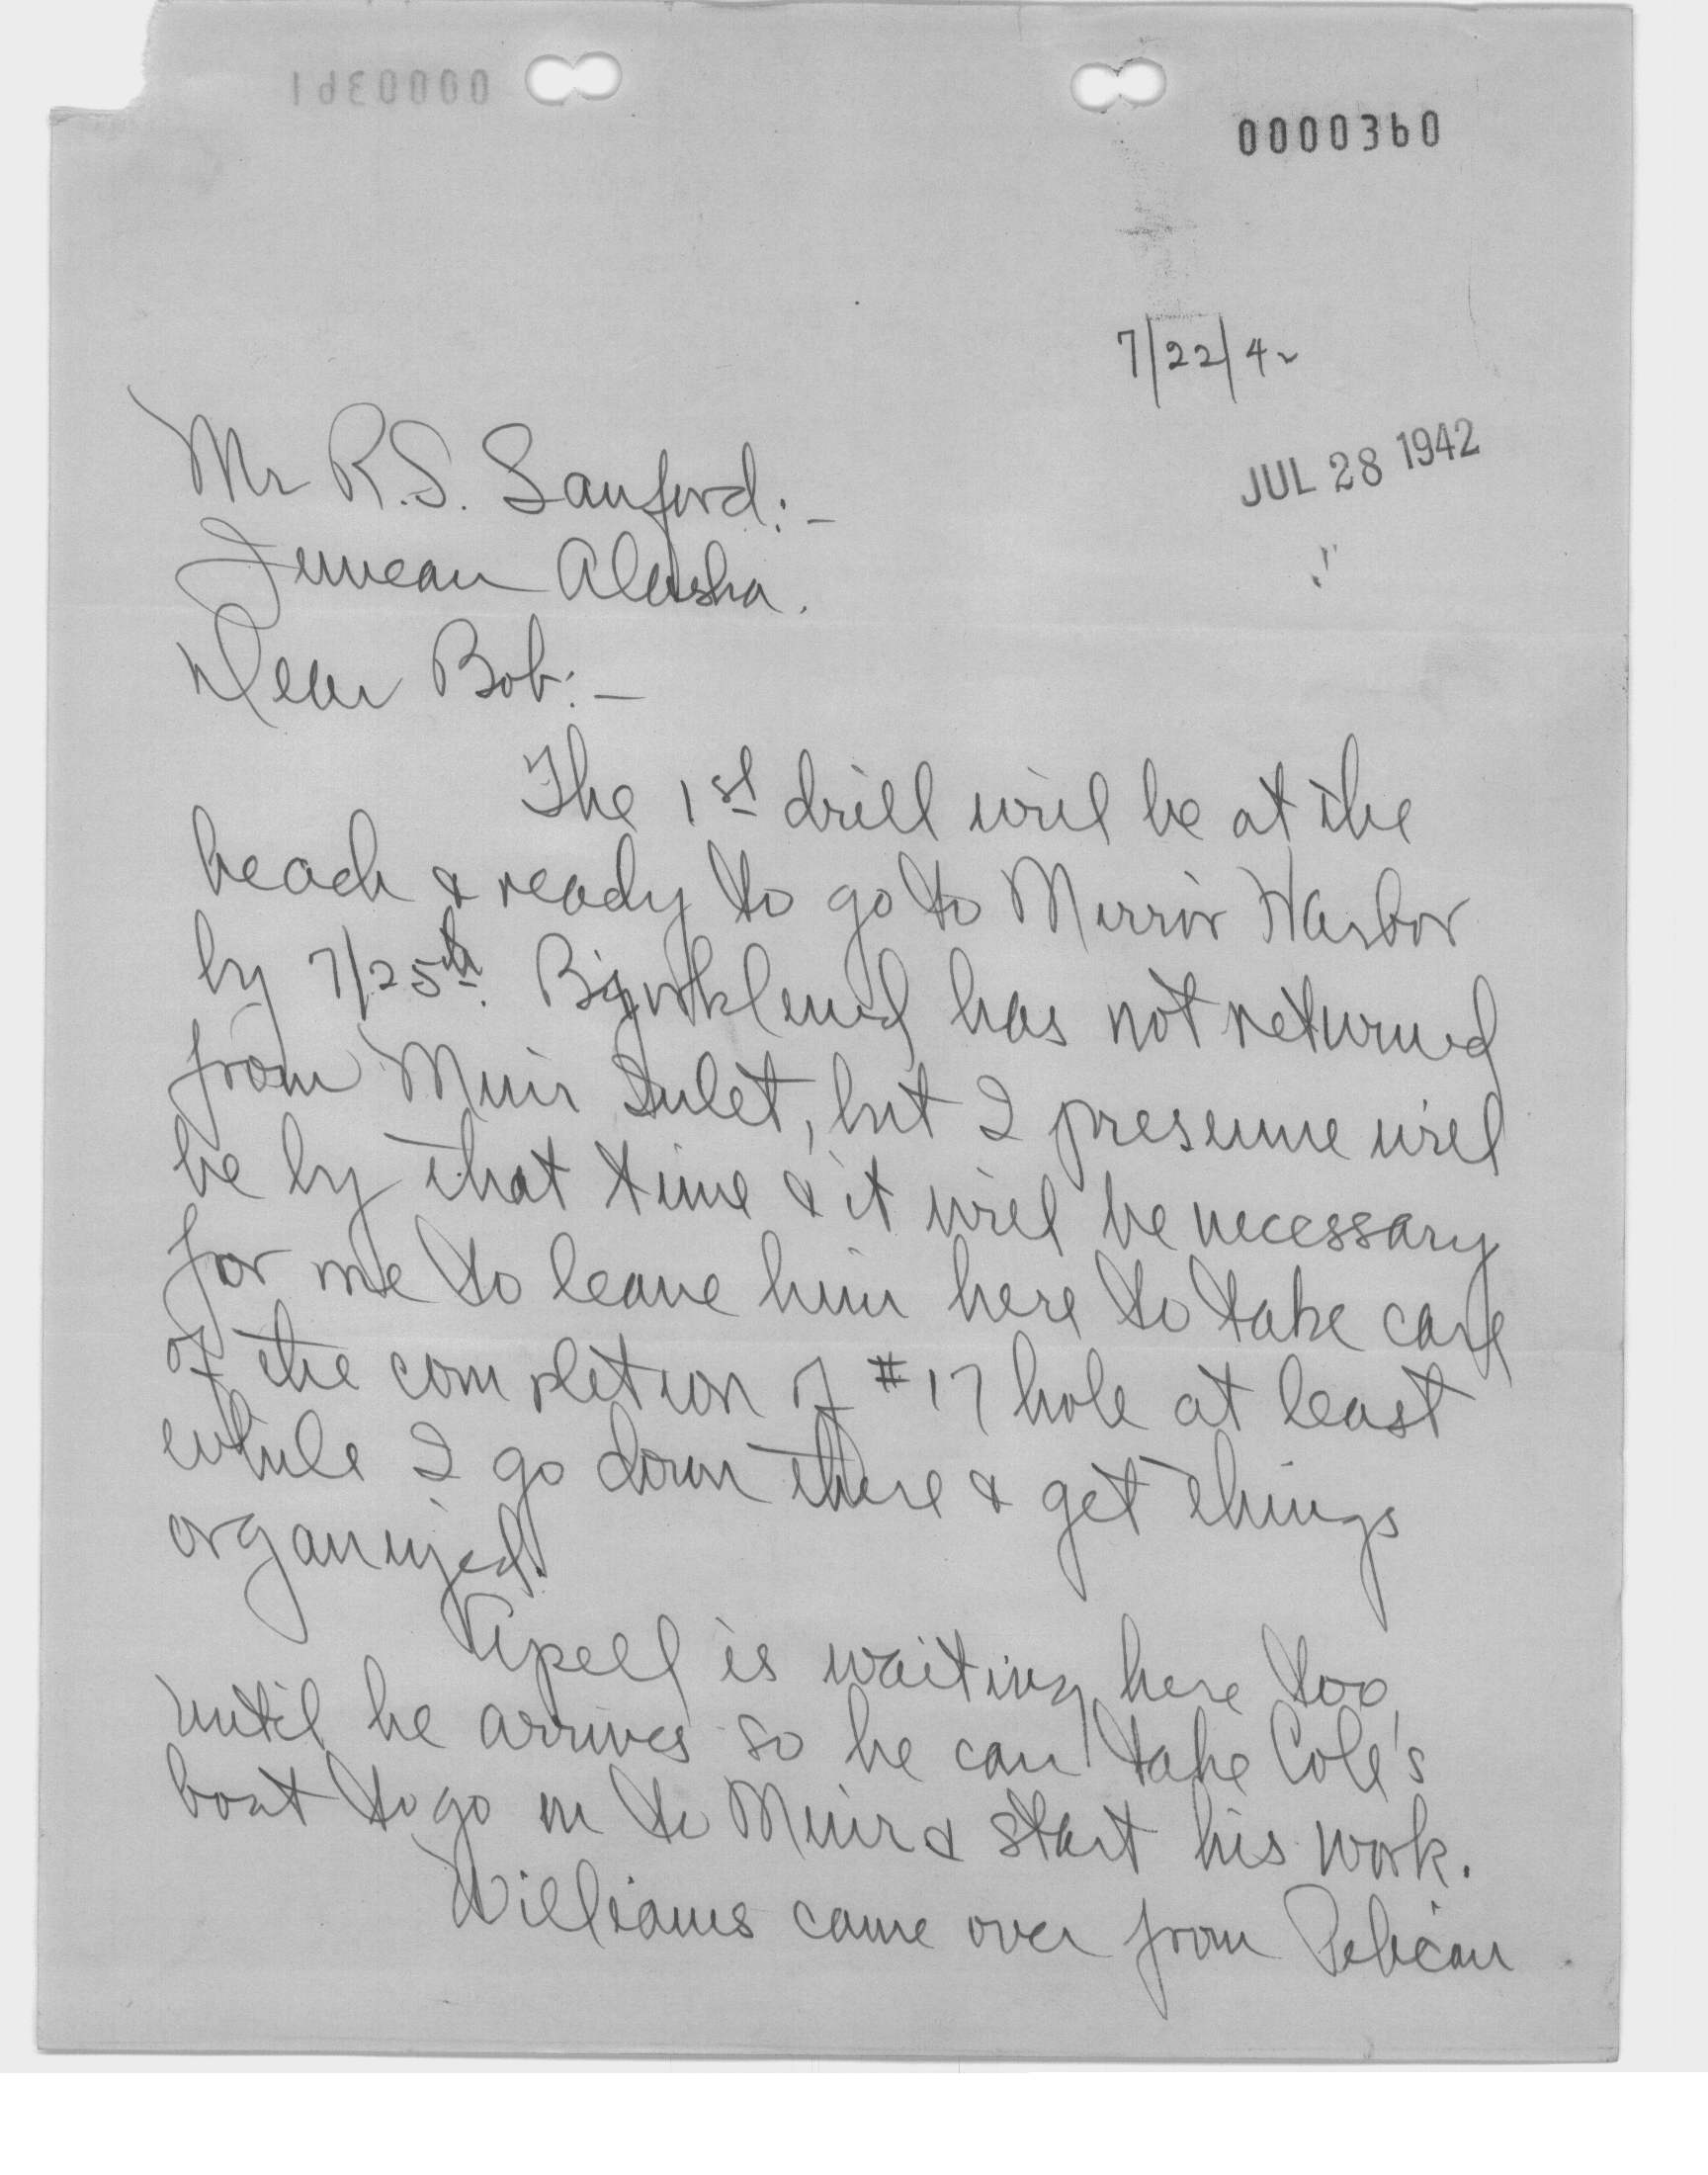 0000360
7/22/42
JUL 28 1942
Mr R.S. Sanford:-
Juneau Alaska.
Dear Bob:-
The 1st drill will be at the
beach & ready to go to Mirror Harbor
by 7/25th. Bjorklund has not returned
from Muir Inlet, but I presume will
be by that time & it will be necessary
for me to leave him here to take care
of the completion of #17 hole at least
while I go down there & get things
organized.
Apell is waiting here too,
until he arrives so he can take Cole's
boat to go in to Muir & start his work.
Williams came over from Pelican